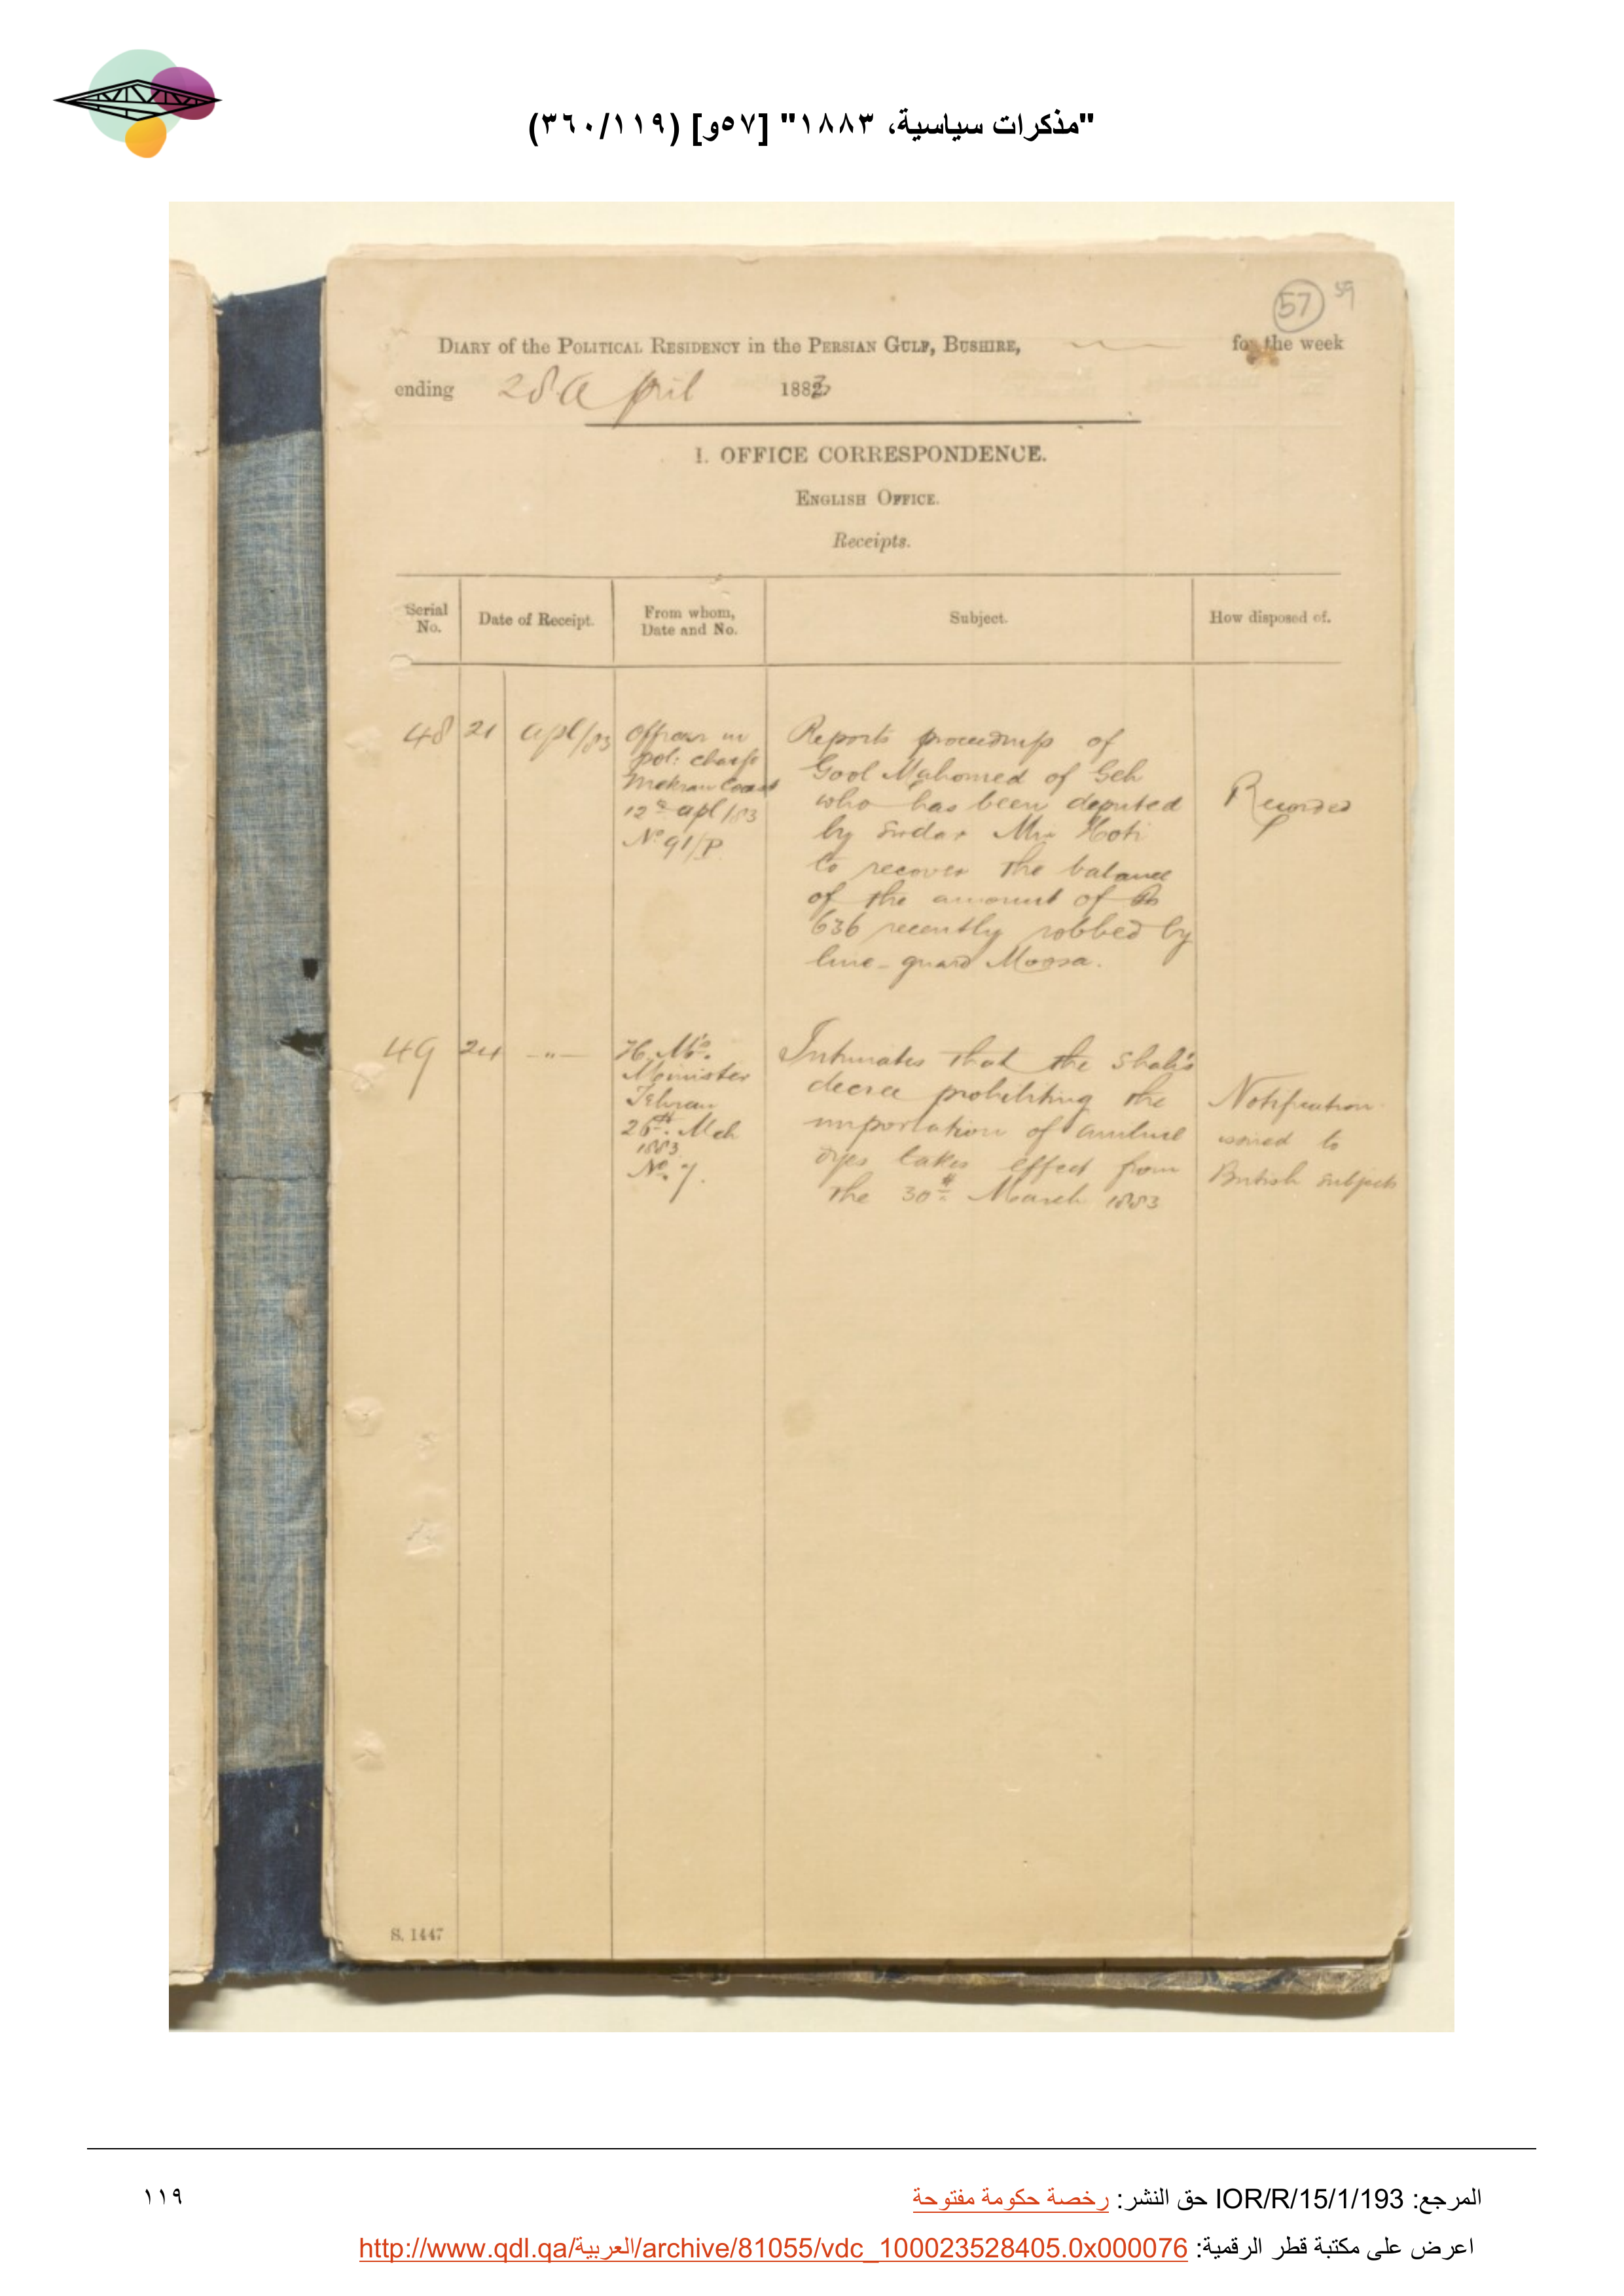 "مذكرات سياسية، ١٨٨٣" [٥٧و] (٣٦٠/١١٩)
57 59
DIARY of the POLITICAL RESIDENCY in the PERSIAN GULF, BUSHIRE, for the week
ending 28 April 1883
I. OFFICE CORRESPONDENCE.
ENGLISH OFFICE.
Receipts.
Serial No. Date of Receipt. From whom, Date and No. Subject. How disposed of.
48 21 Apl/83
Officer in
pol: charge
Mekran Coast
12th Apl/83
No 91/P.
Reports proceedings of
Gool Mahomed of Geh
who has been deputed
by Sirdar Mir Hoti
to recover the balance
of the amount of Rs
636 recently robbed by
line-guard Moosa.
Recorded
49 24 -"-
H. M's.
Minister
Tehran
26th. Mch
1883
No. 7.
Intimates that the Shah's
decree prohibiting the
importation of aniline
dyes takes effect from
the 30th March 1883
Notification
issued to
British subjects
S. 1447
المرجع: IOR/R/15/1/193 حق النشر: رخصة حكومة مفتوحة
١١٩
اعرض على مكتبة قطر الرقمية: http://www.qdl.qa/العربية/archive/81055/vdc_100023528405.0x000076